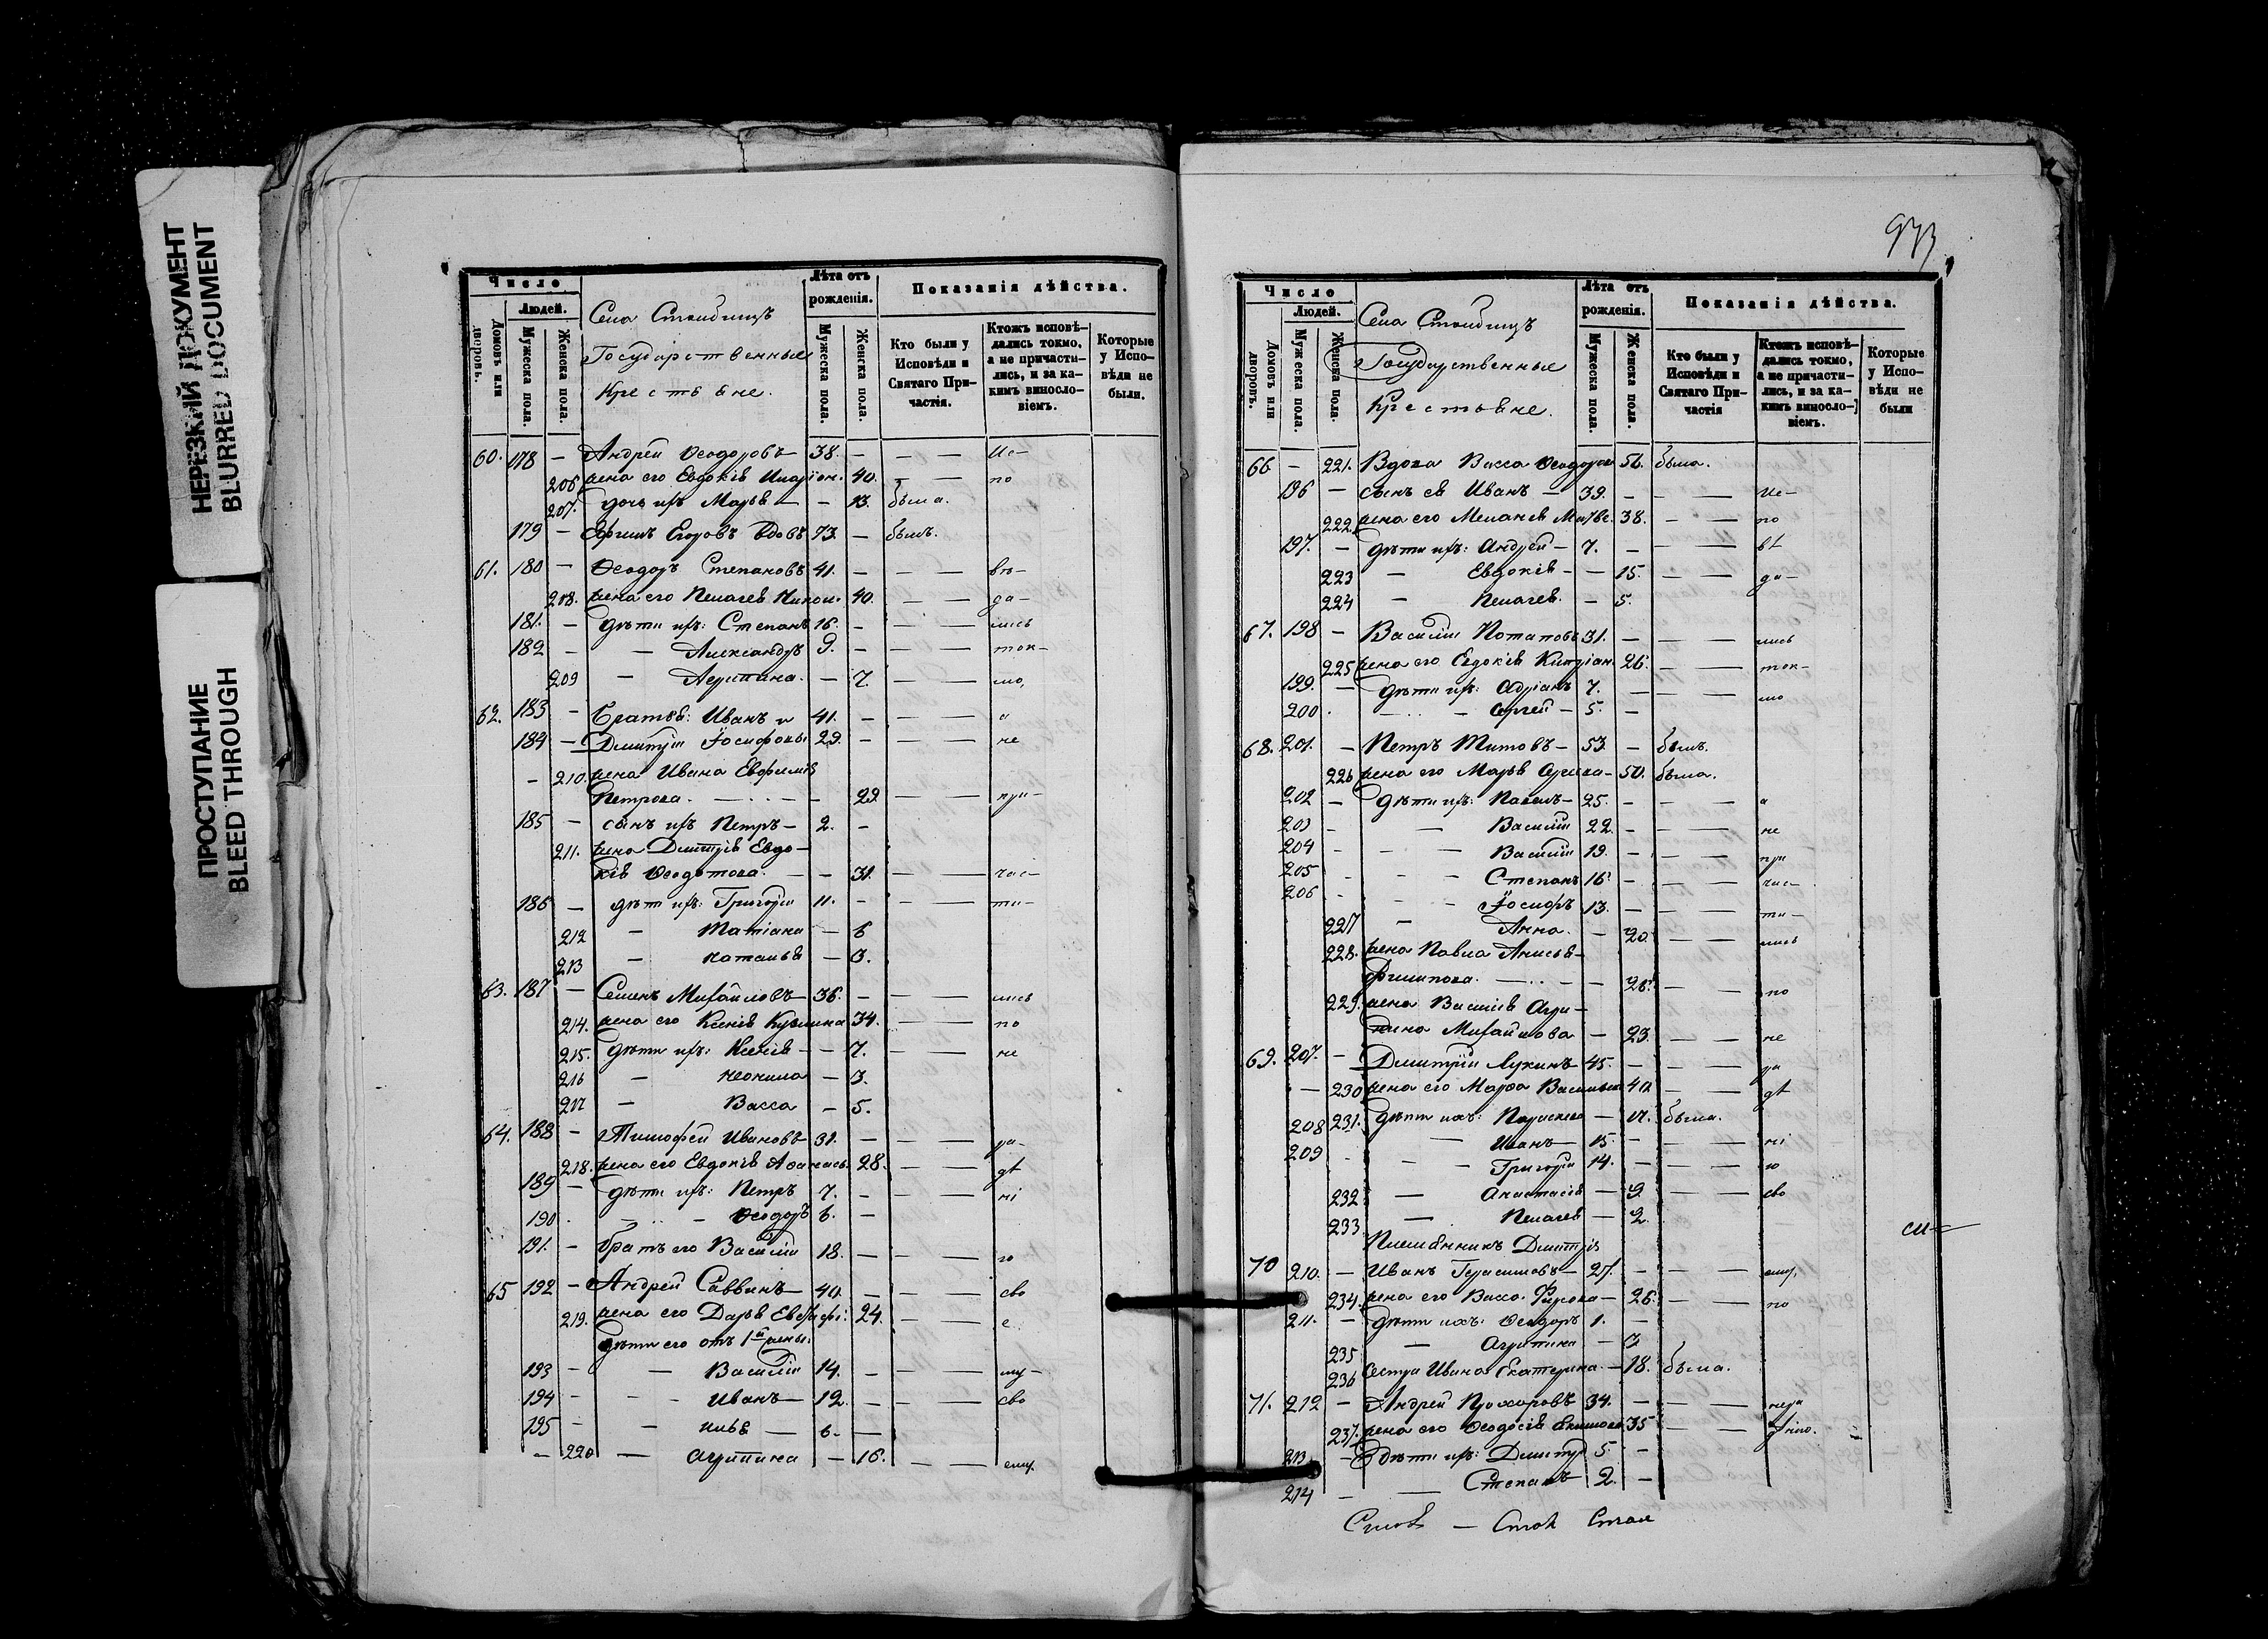 НЕРЕЗКИЙ ДОКУМЕНТ
BLURRED DOCUMENT
ПРОСТУПАНИЕ
BLEED THROUGH
Число
Людей.
Домовъ или дворовъ.
Мужеска пола.
Женска пола.
Села
Государственные
Крестьяне.
Лѣта отъ рожденія.
Мужеска пола.
Женска пола.
Показанія дѣйства.
Кто были у Исповѣди и Святаго Причастія.
Ктожъ исповѣдались токмо, а не причастились, и за какимъ винословіемъ.
Которые у Исповѣди не были.
60. 178 — Андрей Ѳеодоровъ 38. — — — Ис—
206 жена его Евдокія Иларіон. 40. — — по
207. дочь ихъ Марья — — 13. была.
179 — Егоровъ вдовъ 73. — былъ.
61. 180 — Ѳеодоръ Степановъ 41. — — — вѣ—
208. жена его Пелагея Никол. 40. — — да—
181. — дѣти ихъ: Степанъ 16. — — — лись
182 — — Александръ 9. — — — ток—
209 — Агрипина. — 7. — — мо,
62. 183 — Братья: Иванъ и 41. — — — а
184 — Димитрій Іосифовы 29. — — — не
— 210. жена Ивана Евфимія
Петрова. — — 29 — — при—
185 — сынъ ихъ Петръ — 2. —
211. жена Димитрія Евдо—
кія Ѳеодотова. — — 31. — — час—
186 — дѣти ихъ: Григорій 11. — — — ти—
212 — Татіана — 6
213 — Наталья — 3.
63. 187 — Семенъ Михайловъ — 36. — — — лись
214. жена его Ксенія Кузмина 34. — — по
215. дѣти ихъ: Ксенія — — 7. — — не
216 — Неонила — 3.
217 — Васса — 5.
64. 188 — Тимофей Ивановъ 31. — — — ра—
218. жена его Евдокія Аѳанась. 28. — — дѣ
189 — дѣти ихъ: Петръ 7. — — — ні
190. — — Ѳеодоръ 6. —
191. — братъ его Василій 18. — — — ю
65 192 — Андрей Саввинъ — 40. — — — сво
219. жена его Дарья 24. — — е
дѣти его отъ 1й жены:
193 — — Василій 14. — — — му—
194 — — Иванъ — 12. — — — сво
195 — — Илья — 6. —
— 220 — Агрипина — 16. — — ему.
973
Число
Людей.
Домовъ или дворовъ.
Мужеска пола.
Женска пола.
Села
Государственные
Крестьяне.
Лѣта отъ рожденія.
Мужеска пола.
Женска пола.
Показанія дѣйства.
Кто были у Исповѣди и Святаго Причастія
Ктожъ исповѣдались токмо, а не причастились, и за какимъ винословіемъ.
Которые у Исповѣди не были
66 — 221. Вдова Васса Ѳеодоров 56. была.
196 — сынъ ея Иванъ — 39. — — — Ис—
222. жена его Меланія Матве. 38. — — по
197. — дѣти ихъ: Андрей — 7. — — — вѣ
223 — Евдокія — — 15. — — да—
224 — Пелагея. — 5.
67. 198 — Василій Потаповъ 31. — — — лись
225 жена его Евдокія Кипріан. 26. — — ток—
199. — дѣти ихъ: Адріанъ 7. — — — мо
200. — — Сергей — 5. —
68. 201. — Петръ Титовъ — 53. — былъ.
226 жена его Марья 50. была.
202 — дѣти ихъ: Павелъ — 25. — — — а
203 — — Василій 22. — — — не
204 — — Василій 19. — — — при
205 — — Степанъ 16. — — — час—
206 — — Іосифъ 13. — — — ти—
227 — Анна. — 20. — — лись
228. жена Павла Анисья
Филипова. — — 26. — — по
229. жена Василія Агри—
пина Михайлова — 23. — — не
69. 207. — Димитрій Лукинъ — 45. — — — ра
— 230 жена его Марѳа Васильева 40. — — дѣ
231. дѣти ихъ: Параскева — 17. была.
208 — Иванъ — 15. — — — ні
209 — — Григорій 14. — — — ю
232 — Анастасія — 9. — — сво
233 — Пелагея — 2.
Племянникъ Димитрія
70 210. — Иванъ Герасимовъ — 27. — — — ему,
234. жена его Васса 26. — — по
211. — дѣти ихъ: Ѳеодоръ 1. —
235 — Агрипина — 3
236 Сестра Ивана Екатерина. — 18. была.
71. 212 — Андрей Прохоровъ 34. — — — нера
237. жена его Ѳеодосія Якимова 35 — — дѣнію.
213 — дѣти ихъ: Димитр 5. —
214 — — Степанъ 2. —